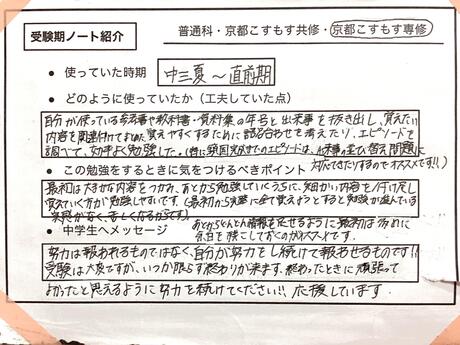 受験期ノート紹介
普通科・京都こすもす共修・京都こすもす専修
● 使っていた時期
中三夏～直前期
● どのように使っていたか（工夫していた点）
自分が使っている参考書や教科書・資料集の年号と出来事を抜き出し、覚えたい
内容を関連付けてまとめ、覚えやすくするために語呂合わせを考えたり、エピソードを
調べて、効率よく勉強した。
エピソードは、出来事の並び替え問題に
● この勉強をするときに気をつけるべきポイント
対応できたりするのでオススメです!!
最初は大きな内容をつかみ、あとから勉強していくうちに、細かい内容を付け足し
覚えていく方が勉強しやすいです。（最初から完璧に全て覚えようとすると勉強が進んでいる
実感がなく、苦しくなるからです）
● 中学生へメッセージ
あとからどんどん情報を足せるように最初は多めに
余白を残しておくのがオススメです。
努力は報われるものではなく、自分が努力をし続けて報わせるものです!!
受験は大変ですが、いつか限らず終わりが来ます。終わったときに頑張って
よかったと思えるように努力を続けてください!! 応援しています。